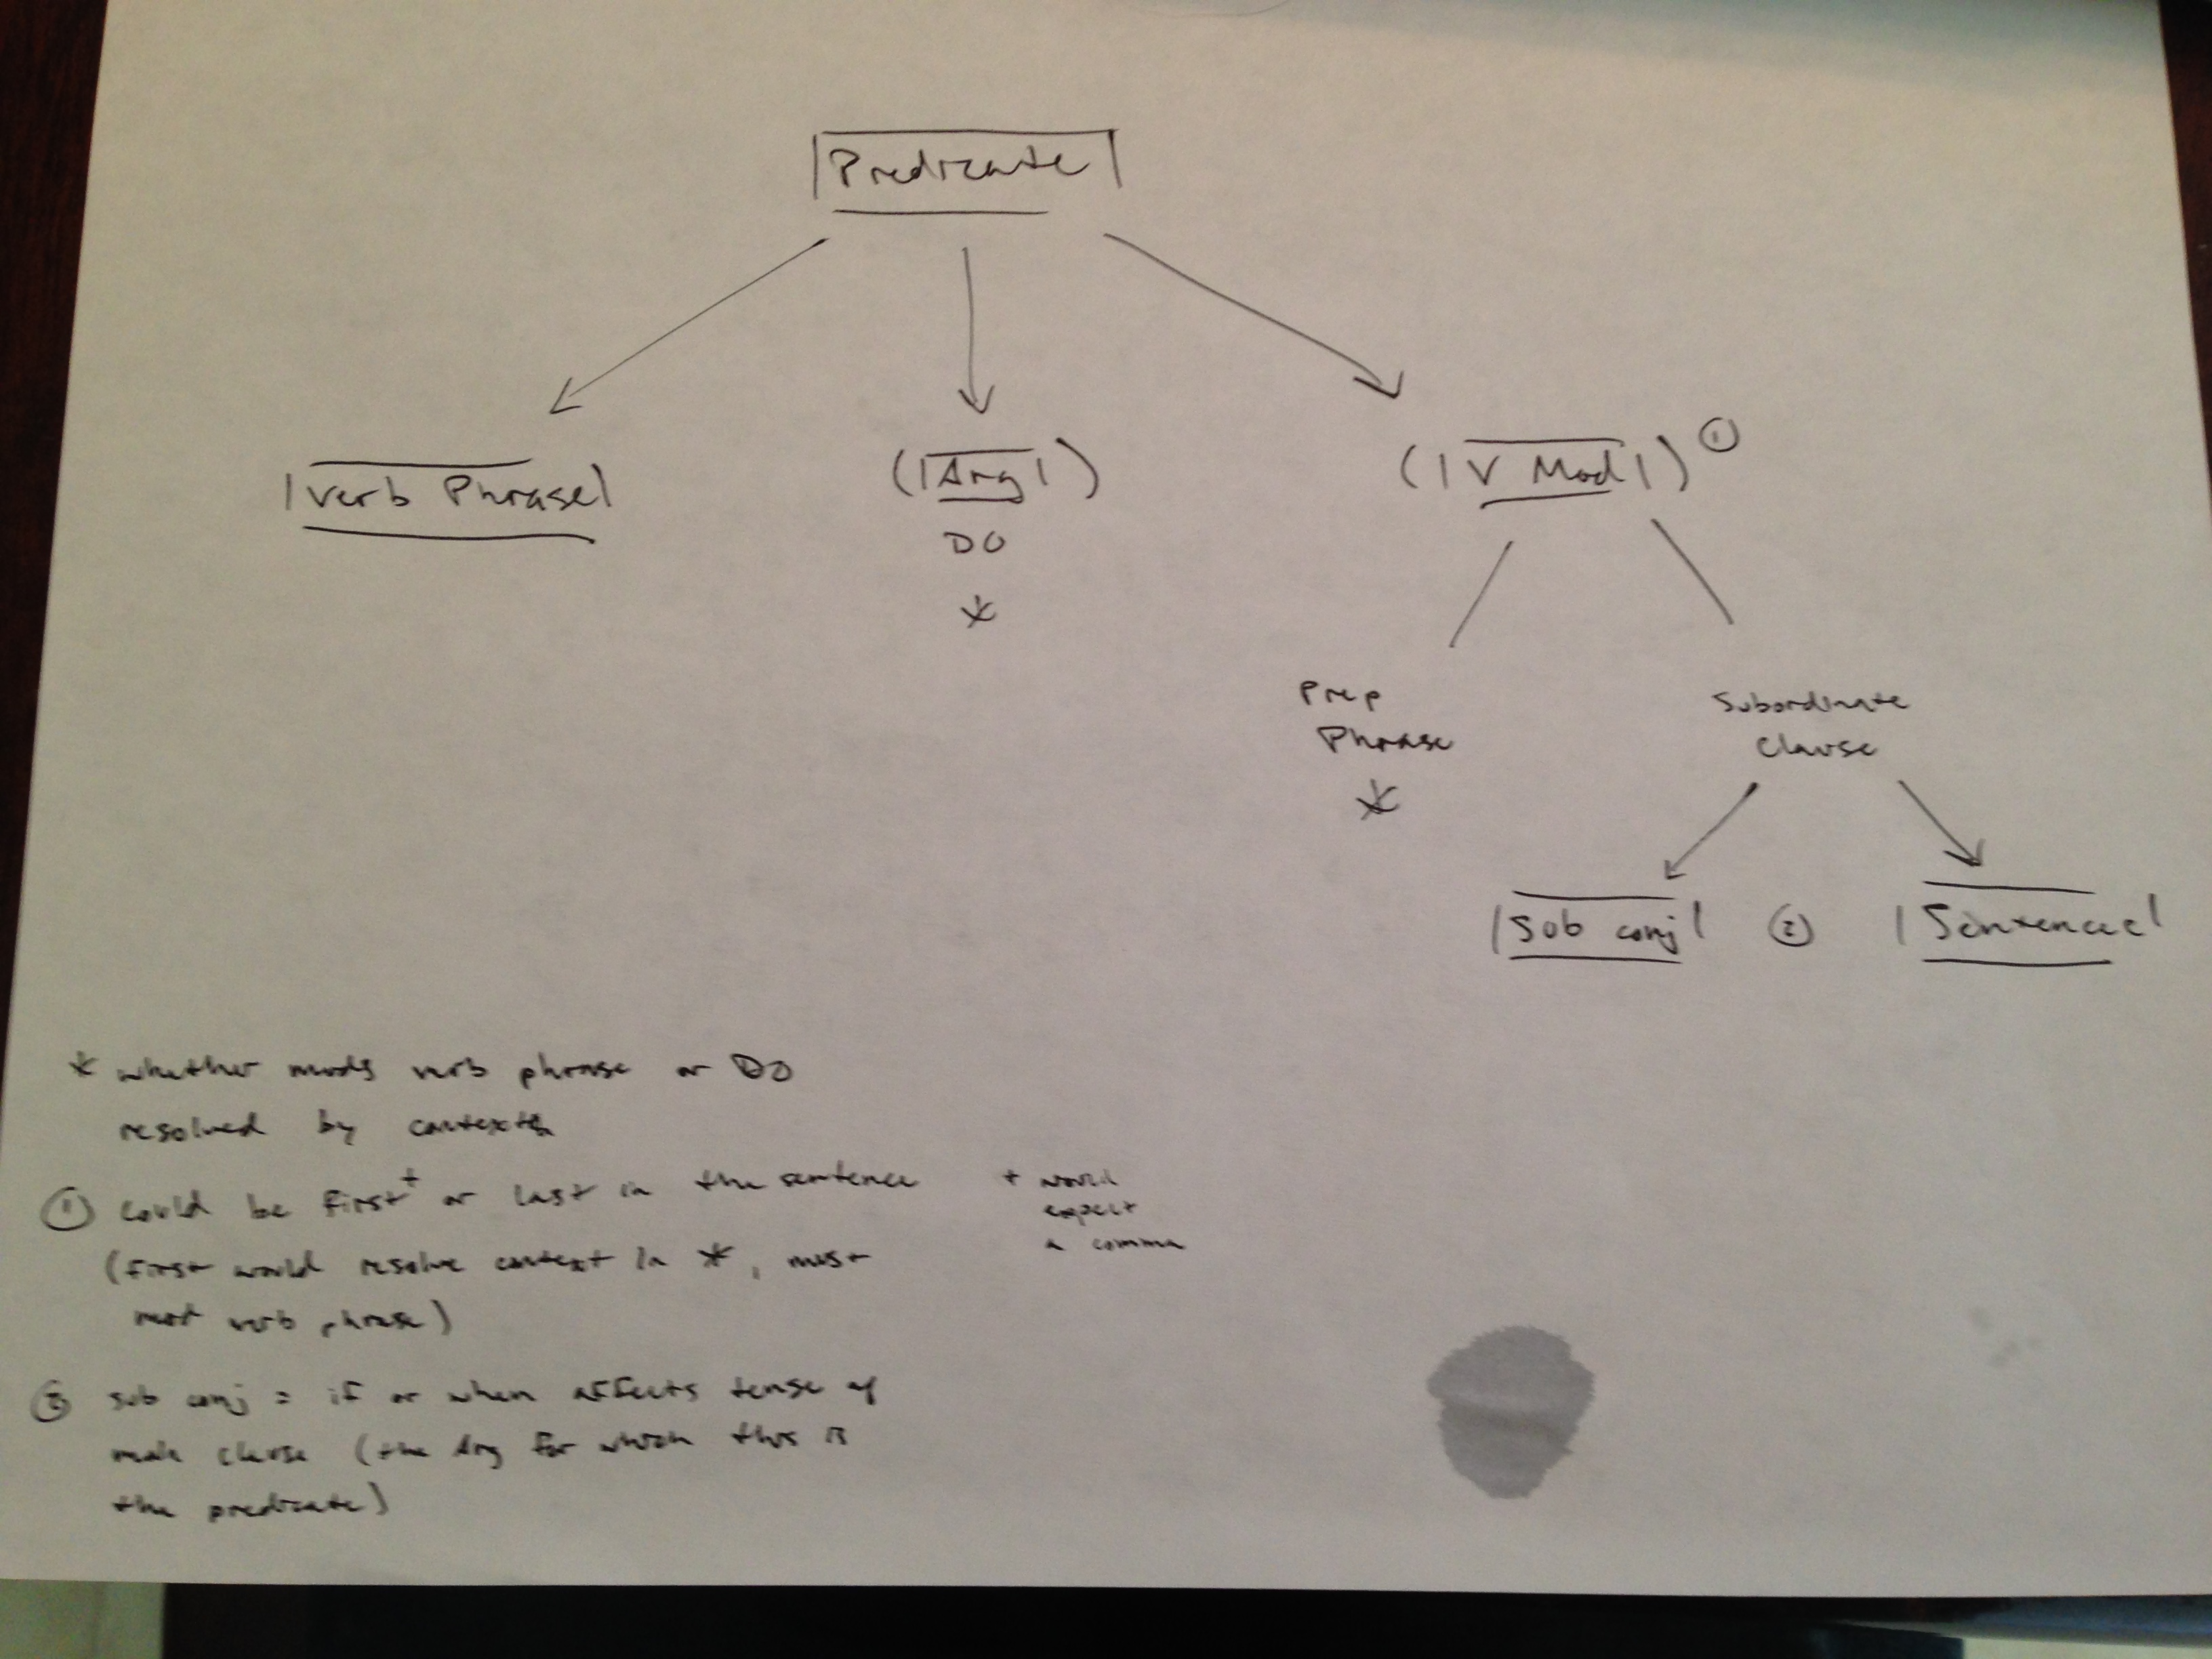 Predicate
Verb Phrase (Arg) (V Mod) ①
DO
*
Prep Subordinate
Phrase Clause
*
Sub conj ② Sentence
* whether mods verb phrase or DO
resolved by context
① could be first+ or last in the sentence + would
expect
(first would resolve context in *, must a comma
verb phrase)
② sub conj = if or when affects tense of
main clause (the Arg for which this is
the predicate)